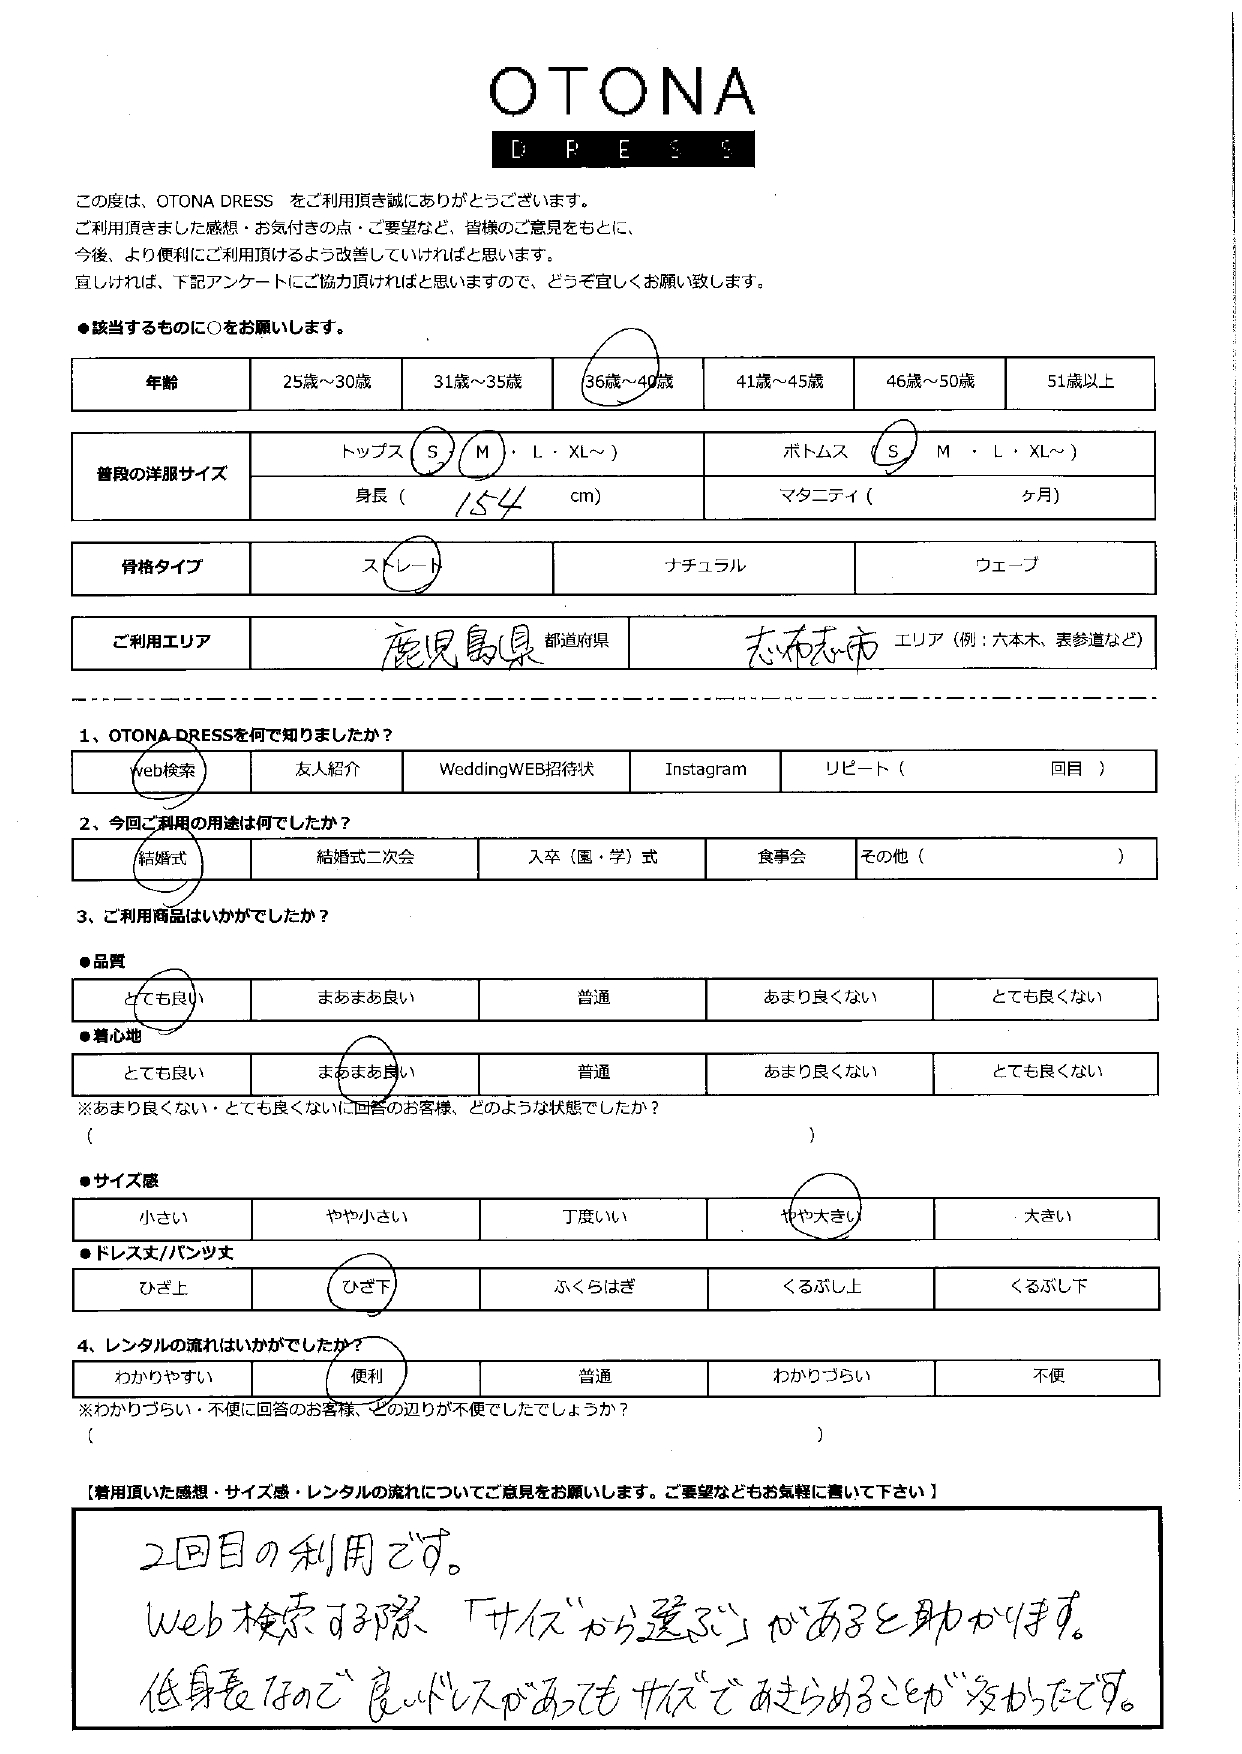 OTONA
DRESS
この度は、OTONA DRESS　をご利用頂き誠にありがとうございます。
ご利用頂きました感想・お気付きの点・ご要望など、皆様のご意見をもとに、
今後、より便利にご利用頂けるよう改善していければと思います。
宜しければ、下記アンケートにご協力頂ければと思いますので、どうぞ宜しくお願い致します。
●該当するものに○をお願いします。
年齢 25歳～30歳 31歳～35歳 36歳～40歳 41歳～45歳 46歳～50歳 51歳以上
普段の洋服サイズ トップス ( S M ・ L ・ XL～ ) ボトムス ( S M ・ L ・ XL～ )
身長 ( 154 cm) マタニティ ( ヶ月)
骨格タイプ ストレート ナチュラル ウェーブ
ご利用エリア 鹿児島県 都道府県 志布志市 エリア（例：六本木、表参道など）
1、OTONA DRESSを何で知りましたか？
web検索 友人紹介 WeddingWEB招待状 Instagram リピート（ 回目 ）
2、今回ご利用の用途は何でしたか？
結婚式 結婚式二次会 入卒（園・学）式 食事会 その他（ ）
3、ご利用商品はいかがでしたか？
●品質
とても良い まあまあ良い 普通 あまり良くない とても良くない
●着心地
とても良い まあまあ良い 普通 あまり良くない とても良くない
※あまり良くない・とても良くないに回答のお客様、どのような状態でしたか？
( )
●サイズ感
小さい やや小さい 丁度いい やや大きい 大きい
●ドレス丈/パンツ丈
ひざ上 ひざ下 ふくらはぎ くるぶし上 くるぶし下
4、レンタルの流れはいかがでしたか？
わかりやすい 便利 普通 わかりづらい 不便
※わかりづらい・不便に回答のお客様、どの辺りが不便でしたでしょうか？
( )
【着用頂いた感想・サイズ感・レンタルの流れについてご意見をお願いします。ご要望などもお気軽に書いて下さい】
2回目の利用です。
Web検索する際、「サイズから選ぶ」があると助かります。
低身長なので良いドレスがあってもサイズであきらめることが多かったです。